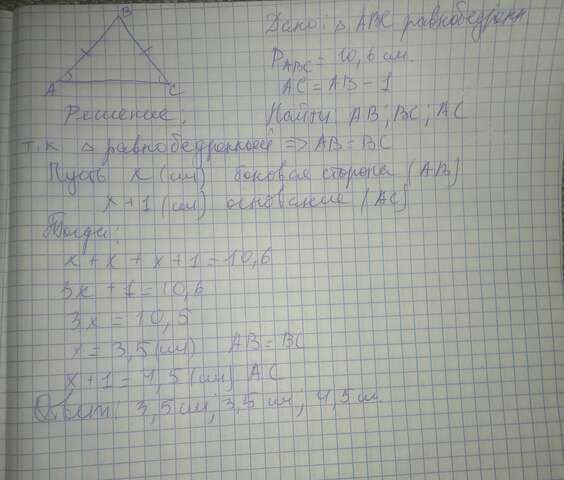 B
A
C
Дано: △ ABC равнобедрен
P ABC = 10,6 см.
AC = AB - 1
Найти AB; BC; AC
Решение:
т.к △ равнобедренный => AB = BC
Пусть x (см) боковая сторона (AB)
x + 1 (см) основание (AC)
Тогда:
x + x + x + 1 = 10,6
3x + 1 = 10,6
3x = 10,5
x = 3,5 (см) AB = BC
x + 1 = 4,5 (см) AC
Ответ: 3,5 см; 3,5 см; 4,5 см.